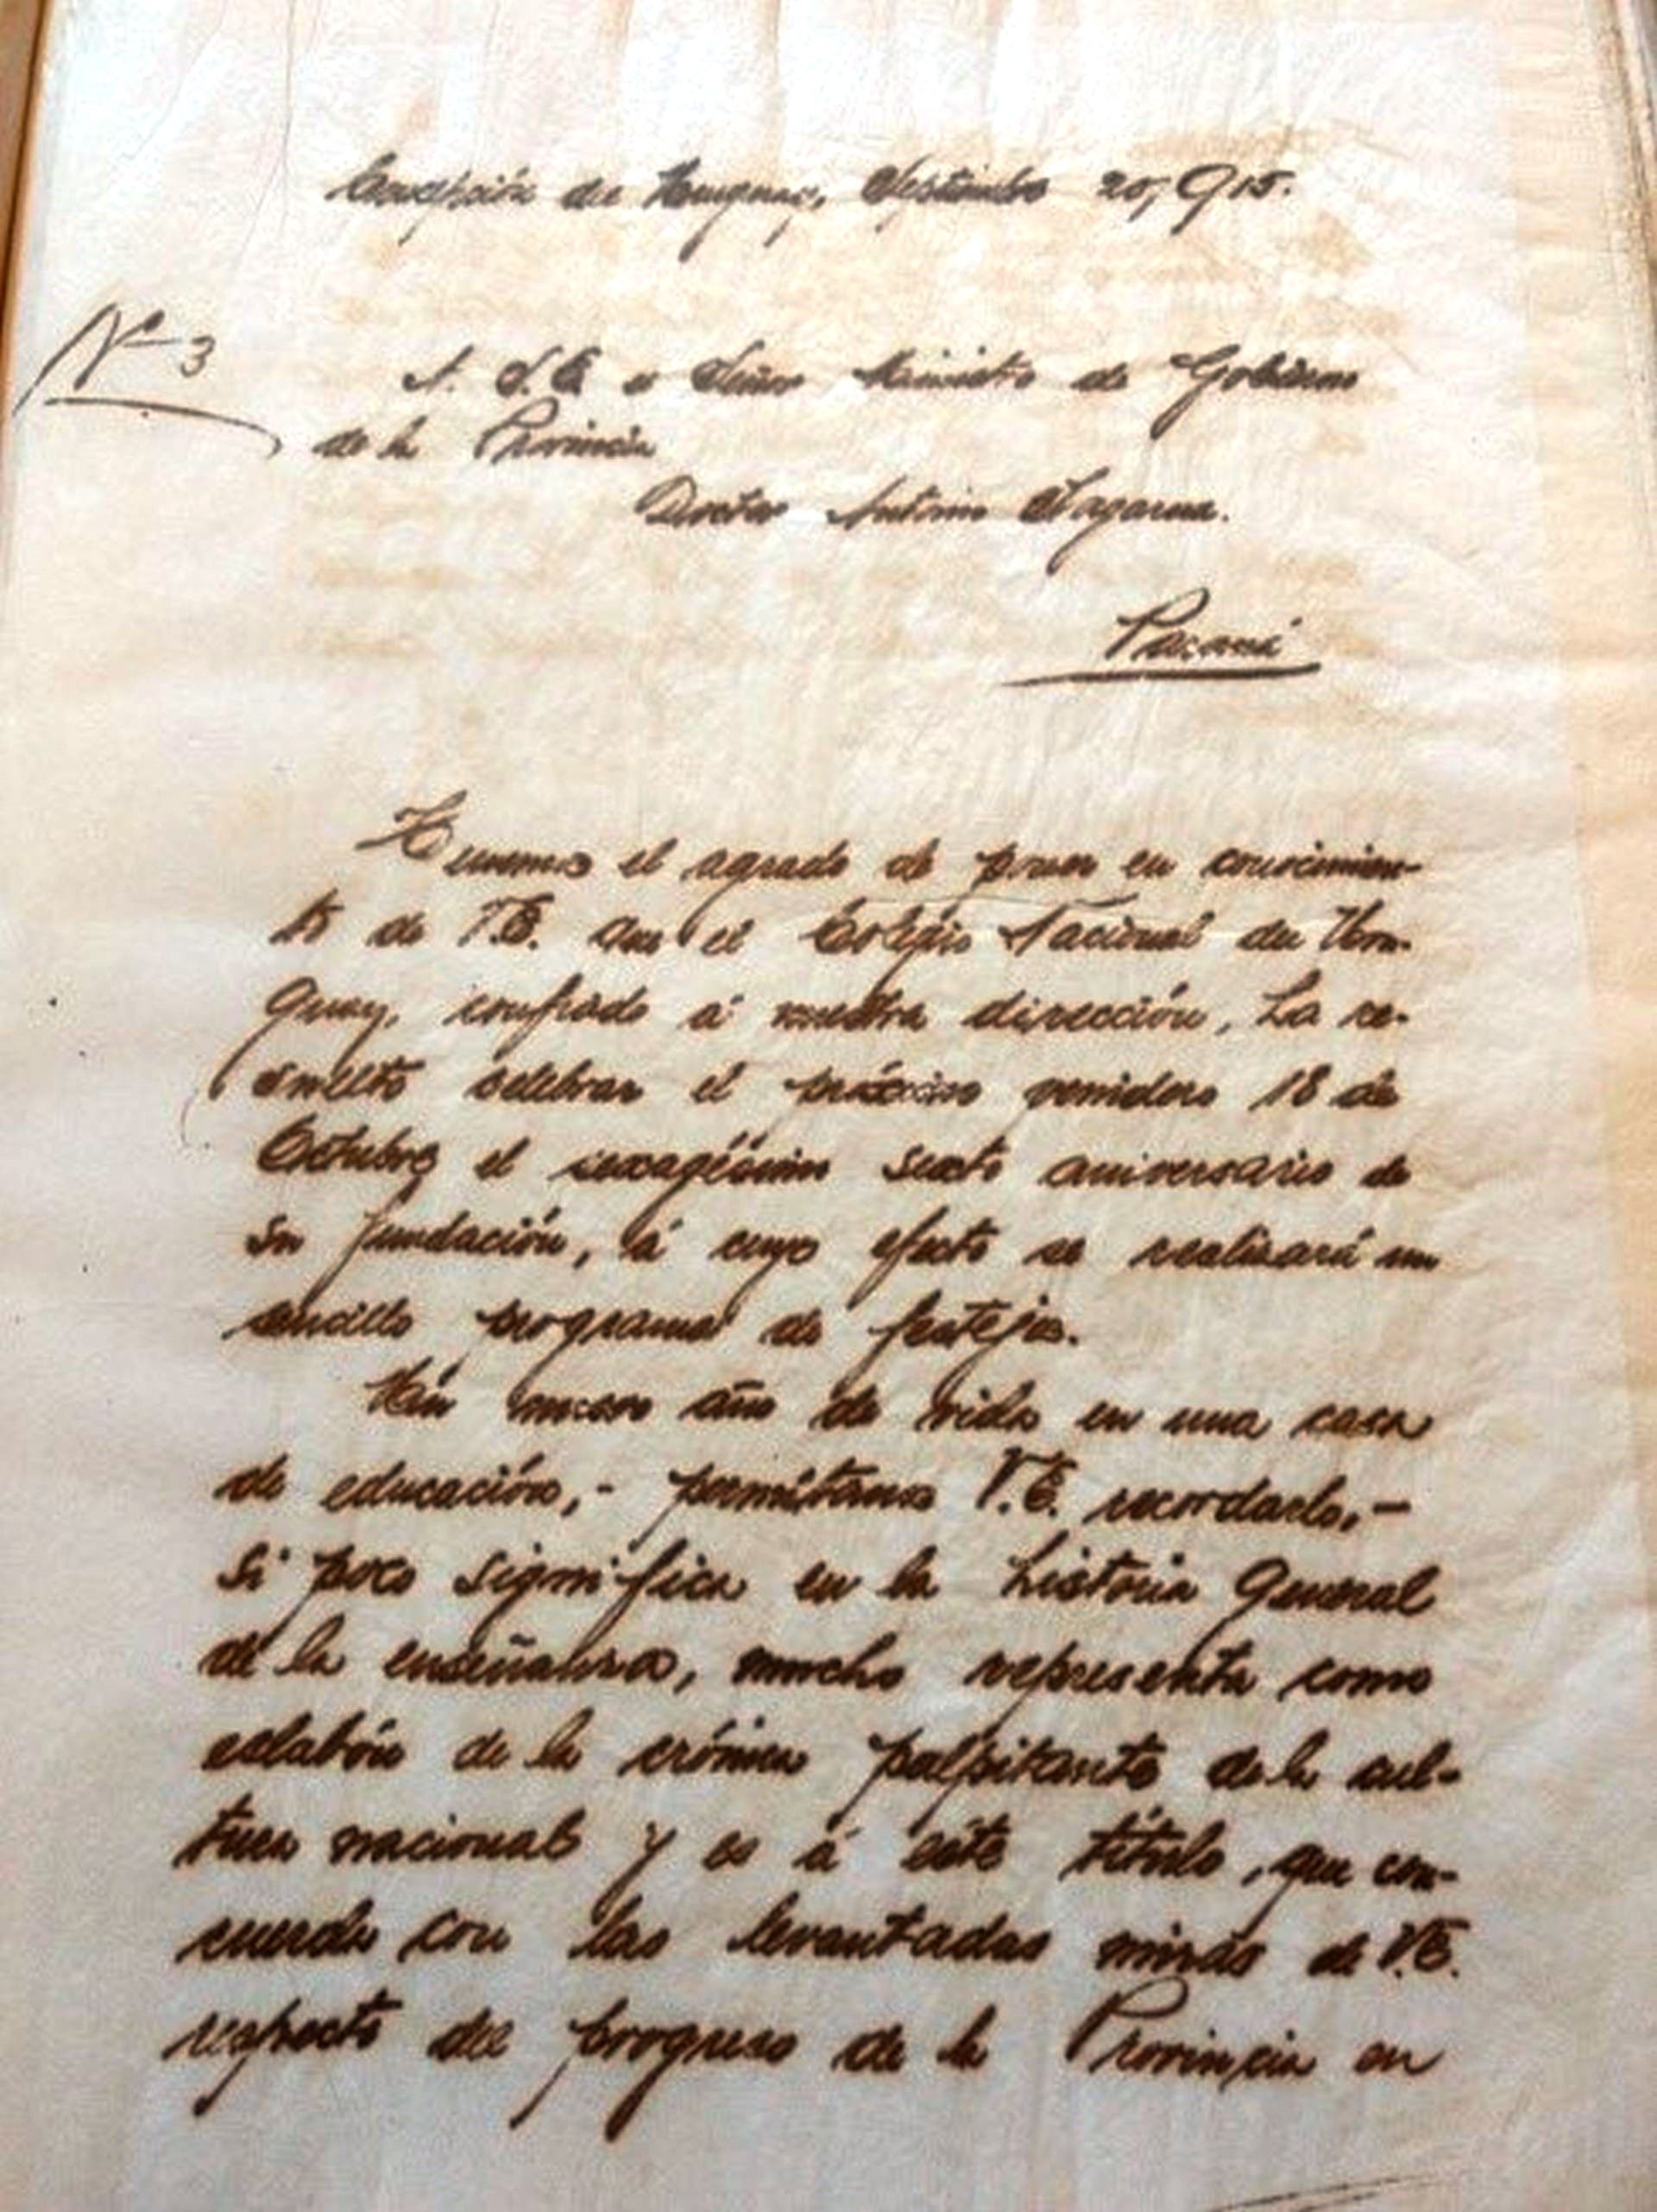 Concepción del Uruguay, Septiembre 20, 915.
Nº 3
A. S.E. el Señor Ministro de Gobierno
de la Provincia
Doctor Antonio Sagarna.
Paraná
Tenemos el agrado de poner en conocimien-
to de V.E. que el Colegio Nacional del Uru-
guay, confiado á nuestra dirección, ha re-
suelto celebrar el próximo venidero 18 de
Octubre el sexagésimo sexto aniversario de
su fundación, á cuyo efecto se realizará un
sencillo programa de festejos.
Un nuevo año de vida en una casa
de educación,- permítanos V.E. recordarlo,-
si poco significa en la historia General
de la enseñanza, mucho representa como
eslabón de la crónica palpitante de la cul-
tura nacional y es á éste título, que con-
cuerda con las levantadas miras de V.E.
respecto del progreso de la Provincia en